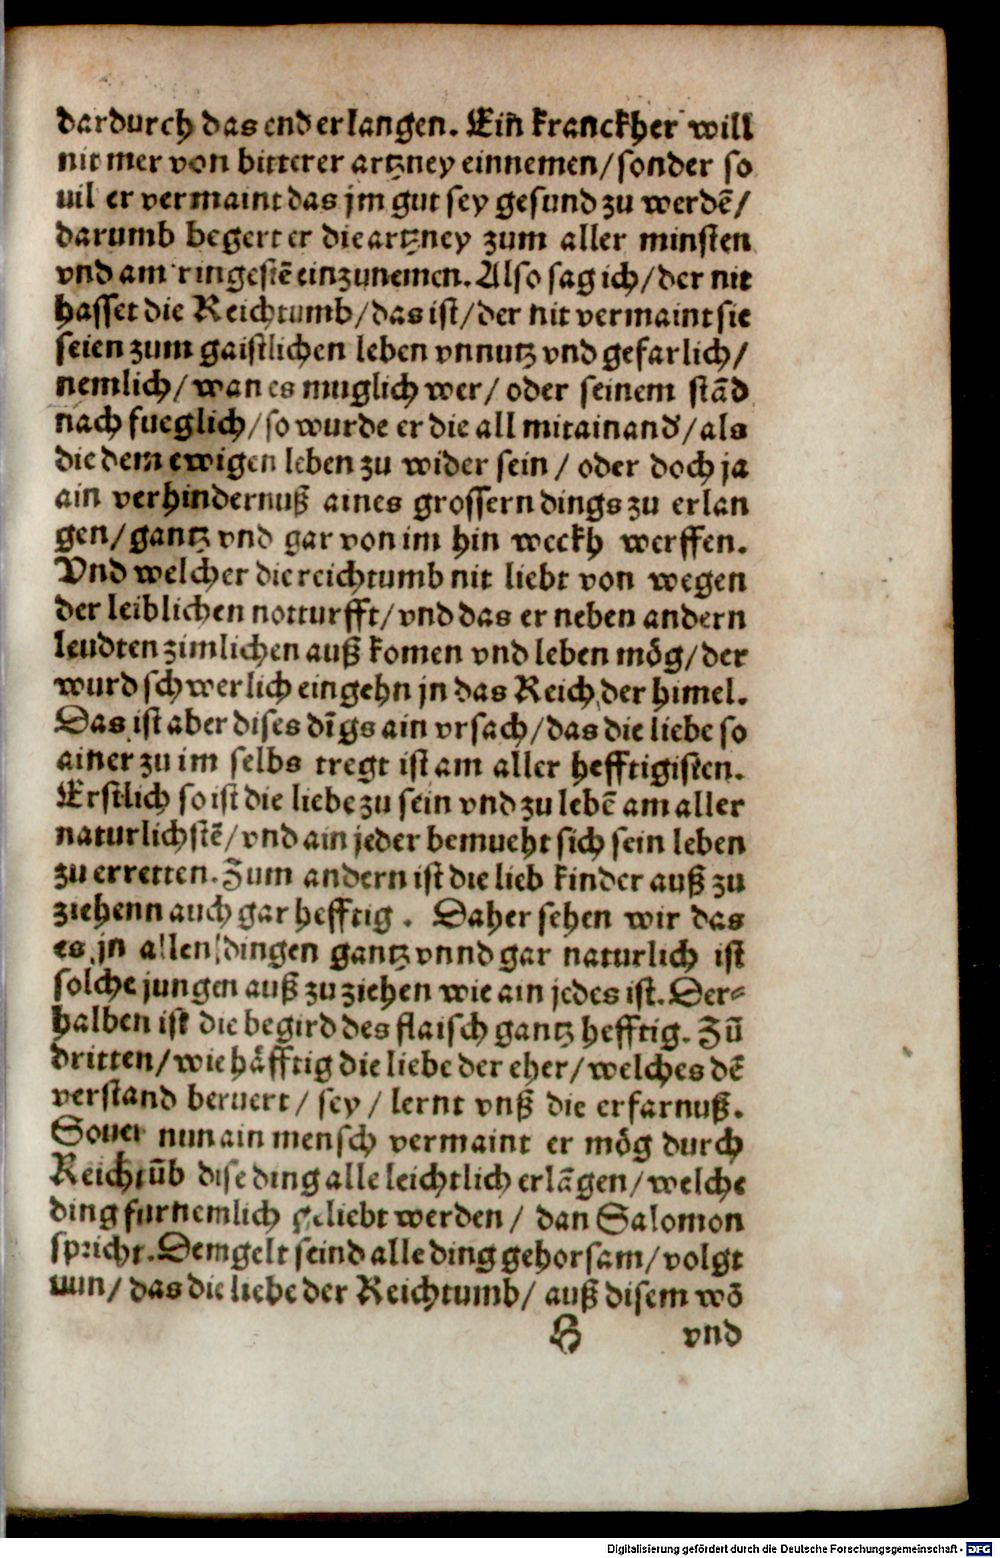 dardurch das end erlangen. Ein kranckher will
nit mer von bitterer artzney einnemen/sonder so
uil er vermaint das jm gut sey gesund zu werdē/
darumb begert er die artzney zum aller minsten
vnd am ringestē einzunemen. Also sag ich/der nit
hasset die Reichtumb/das ist/der nit vermaint sie
seien zum gaistlichen leben vnnutz vnd gefarlich/
nemlich/wan es muglich wer/ oder seinem stād
nach fueglich/so wurde er die all mitainand/als
die dem ewigen leben zu wider sein / oder doch ja
ain verhindernuß aines grossern dings zu erlan
gen/gantz vnd gar von im hin weckh werffen.
Vnd welcher die reichtumb nit liebt von wegen
der leiblichen notturfft/vnd das er neben andern
leudten zimlichen auß komen vnd leben mög/der
wurd schwerlich eingehn jn das Reich der himel.
Das ist aber dises dīgs ain vrsach/das die liebe so
ainer zu im selbs tregt ist am aller hefftigisten.
Erstlich so ist die liebe zu sein vnd zu lebē am aller
naturlichstē/vnd ain jeder bemueht sich sein leben
zu erretten. Zum andern ist die lieb kinder auß zu
ziehenn auch gar hefftig. Daher sehen wir das
es jn allen dingen gantz vnnd gar naturlich ist
solche jungen auß zu ziehen wie ain jedes ist. Der⸗
halben ist die begird des flaisch gantz hefftig. Zū
dritten/wie häfftig die liebe der eher/welches dē
verstand beruert/ sey / lernt vnß die erfarnuß.
Souer nun ain mensch vermaint er mög durch
Reichtūb dise ding alle leichtlich erlāgen/welche
ding furnemlich geliebt werden / dan Salomon
spricht. Dem gelt seind alle ding gehorsam/volgt
nun/das die liebe der Reichtumb/ auß disem wō
H vnd
Digitalisierung gefördert durch die Deutsche Forschungsgemeinschaft - DFG